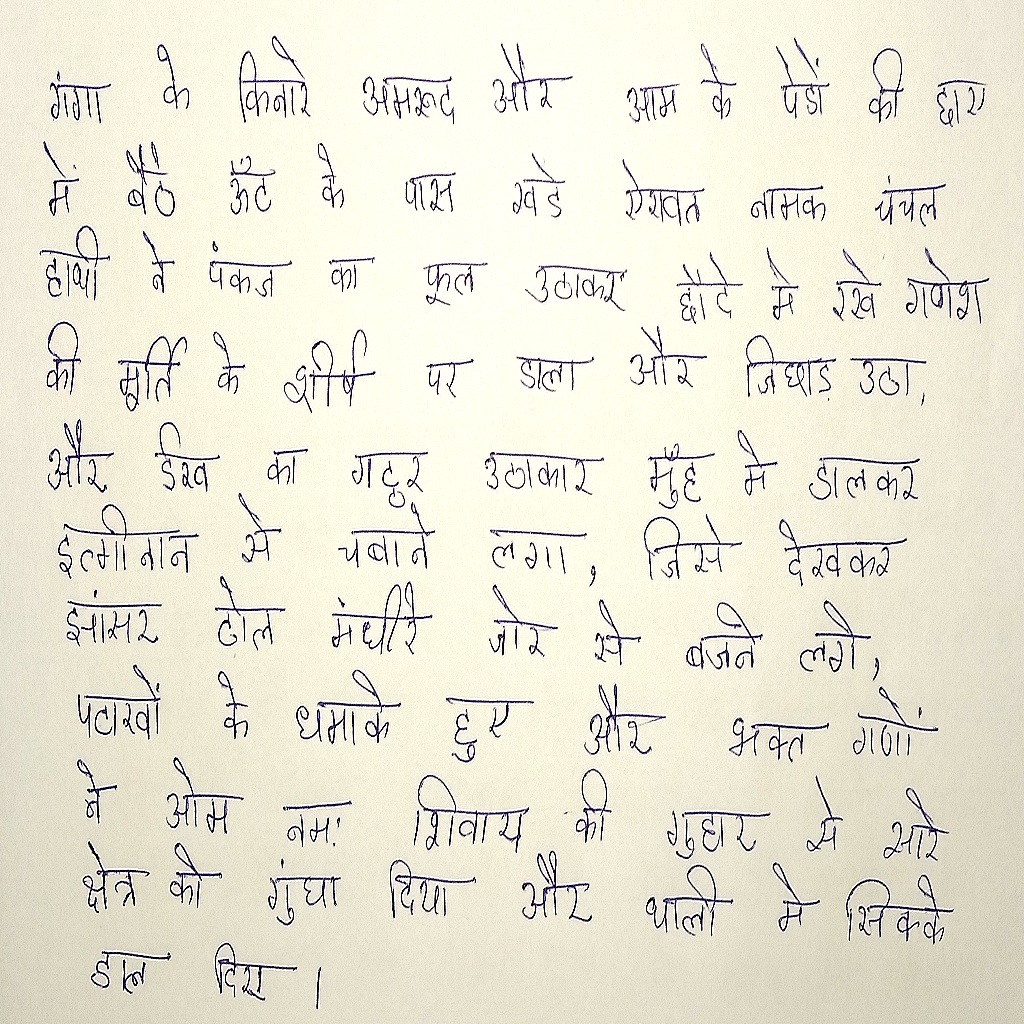 गंगा के किनारे अमरूद और आम के पेडों की छाए
में बैठे ऊँट के पास खडे ऐरावत नामक चंचल
हाथी ने पंकज का फूल उठाकर छोटे मे रखे गणेश
की मूर्ति के शीर्ष पर डाला और चिघाड़ उठा,
और ईख का गट्ठर उठाकार मुँह मे डालकर
इत्मीनान से चबाने लगा, जिसे देखकर
झांसर ढोल मंघीरे जोर से बजने लगे,
पटाखों के धमाके हुए और भक्त गणों
ने ओम नमः शिवाय की गुहार से सारे
क्षेत्र को गुंघा दिया और थाली मे सिक्के
डाल दिए।